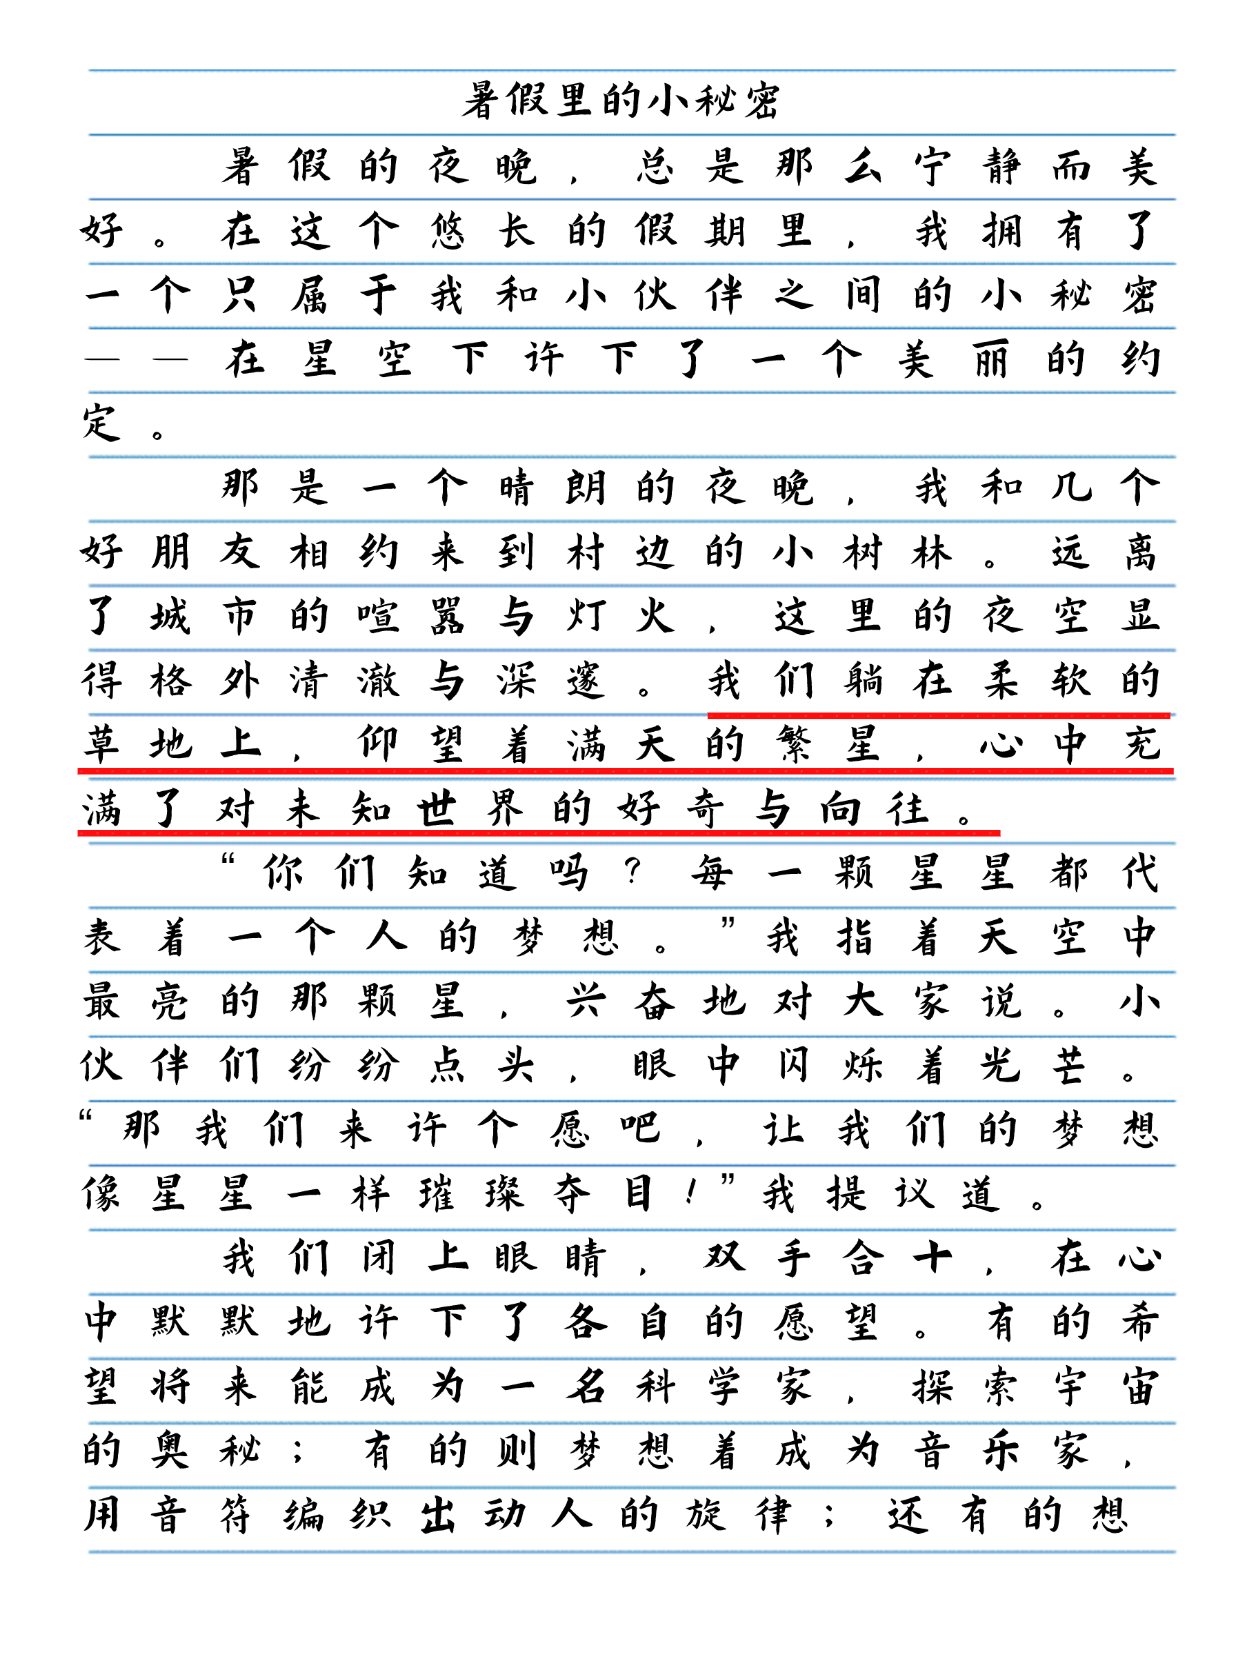 暑假里的小秘密
暑假的夜晚，总是那么宁静而美
好。在这个悠长的假期里，我拥有了
一个只属于我和小伙伴之间的小秘密
——在星空下许下了一个美丽的约
定。
那是一个晴朗的夜晚，我和几个
好朋友相约来到村边的小树林。远离
了城市的喧嚣与灯火，这里的夜空显
得格外清澈与深邃。我们躺在柔软的
草地上，仰望着满天的繁星，心中充
满了对未知世界的好奇与向往。
“你们知道吗？每一颗星星都代
表着一个人的梦想。”我指着天空中
最亮的那颗星，兴奋地对大家说。小
伙伴们纷纷点头，眼中闪烁着光芒。
“那我们来许个愿吧，让我们的梦想
像星星一样璀璨夺目！”我提议道。
我们闭上眼睛，双手合十，在心
中默默地许下了各自的愿望。有的希
望将来能成为一名科学家，探索宇宙
的奥秘；有的则梦想着成为音乐家，
用音符编织出动人的旋律；还有的想